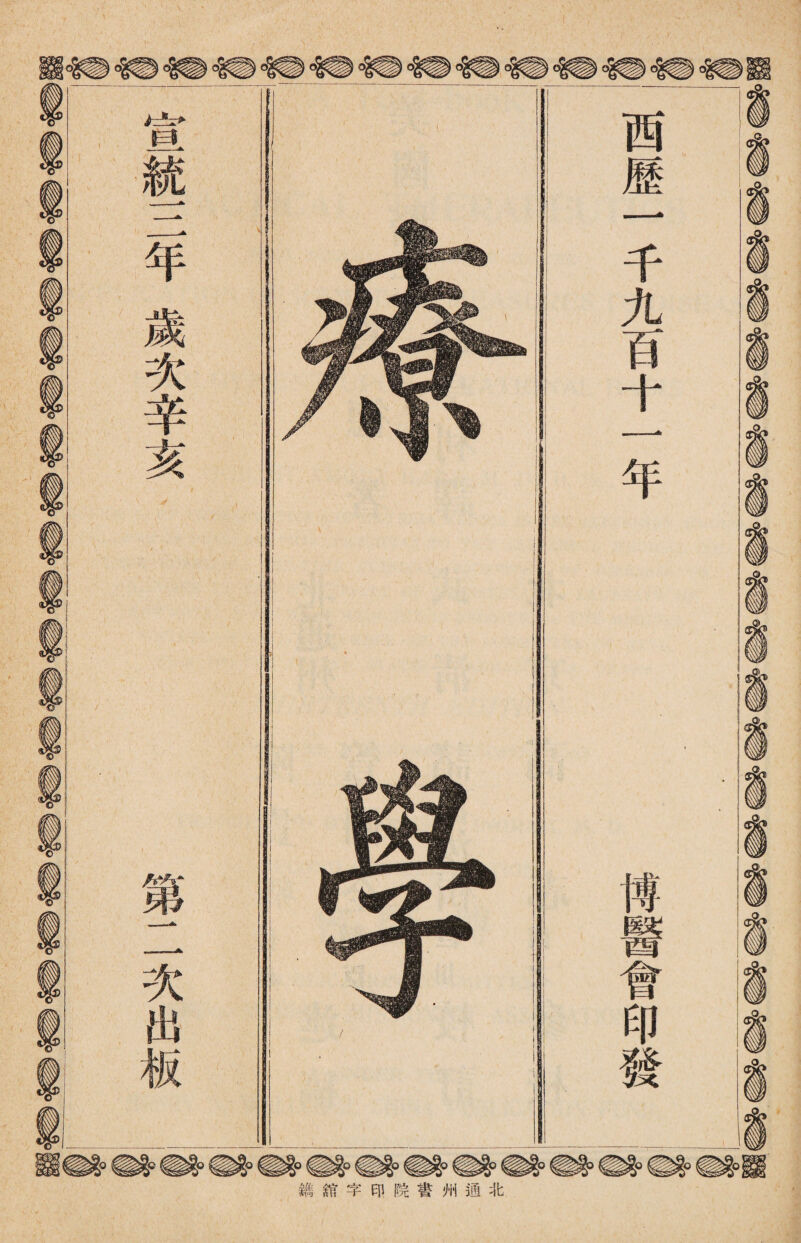 西歷一千九百十一年
博醫會印發
療學
宣統三年 歲次辛亥
第二次出板
北通州書院印字館鐫